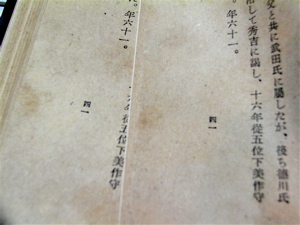 父と共に武田氏に屬したが、後ち德川氏
して秀吉に謁し、十六年從五位下美作守
。年六十一。
四一
。年六十一。
十六年從五位下美作守
四一